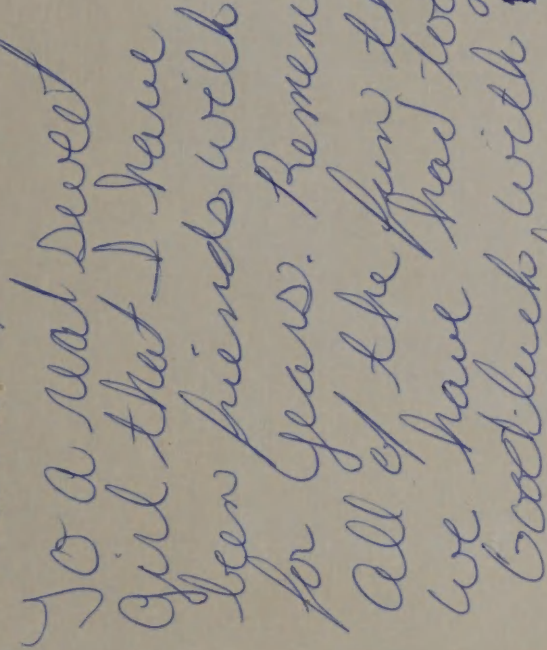 To a real sweet
girl that I have
been friends with
for years. Remem
all of the fun th
we have had tog
Good luck, with